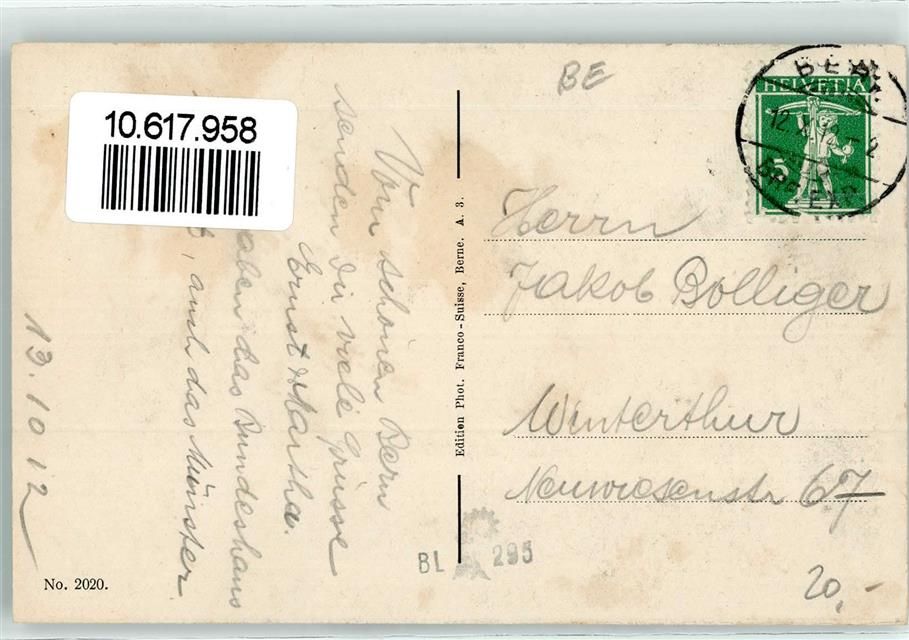 10.617.958
BE
HELVETIA
5
BERN
12. X
2
BRF. EXP.
Vom schönen Bern
senden Dir viele Grüsse
Ernst & Martha.
haben das Bundeshaus
, auch das Münster.
13. 10 12
Edition Phot. Franco-Suisse, Berne. A. 3.
Herrn
Jakob Bolliger
Winterthur
Neuwiesenstr 67
BL 295
20,-
No. 2020.